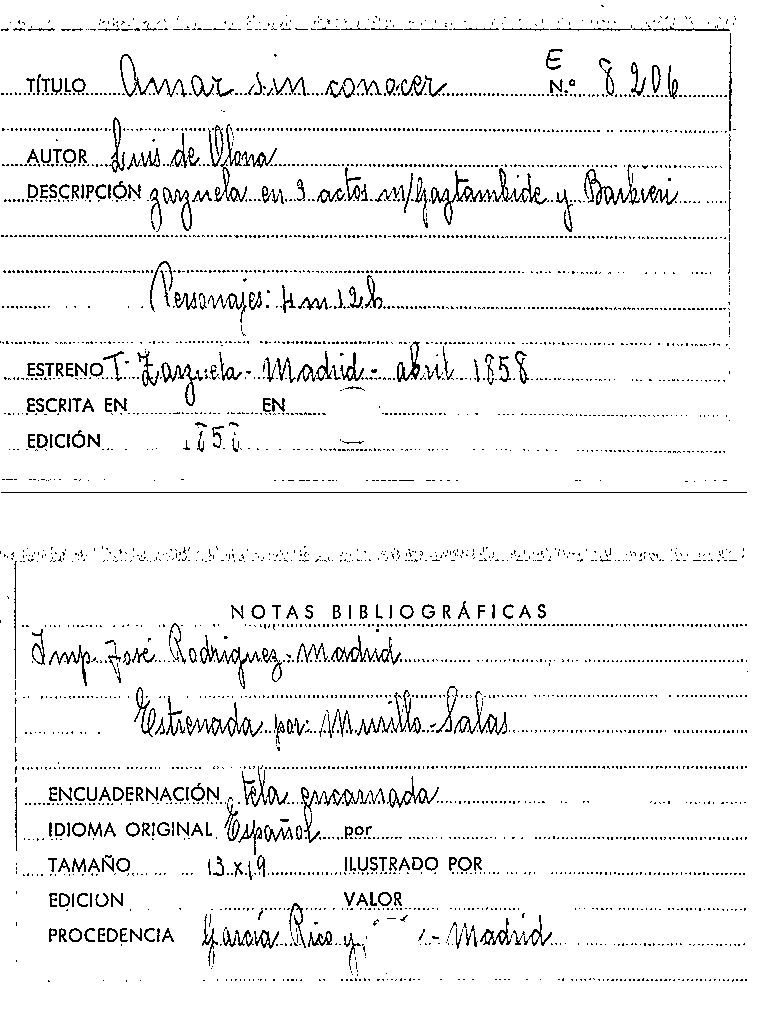 E
TÍTULO Amar sin conocer N.º 8206
AUTOR Luis de Olona
DESCRIPCIÓN zarzuela en 3 actos m/Gaztambide y Barbieri
Personajes: 4 m 12 h
ESTRENO T. Zarzuela - Madrid - abril 1858
ESCRITA EN EN
EDICIÓN 1858
NOTAS BIBLIOGRÁFICAS
Imp. José Rodriguez - Madrid
Estrenada por: Murillo - Salas
ENCUADERNACIÓN tela encarnada
IDIOMA ORIGINAL Español por
TAMAÑO 13 x 19 ILUSTRADO POR
EDICION VALOR
PROCEDENCIA García Rico y - Madrid